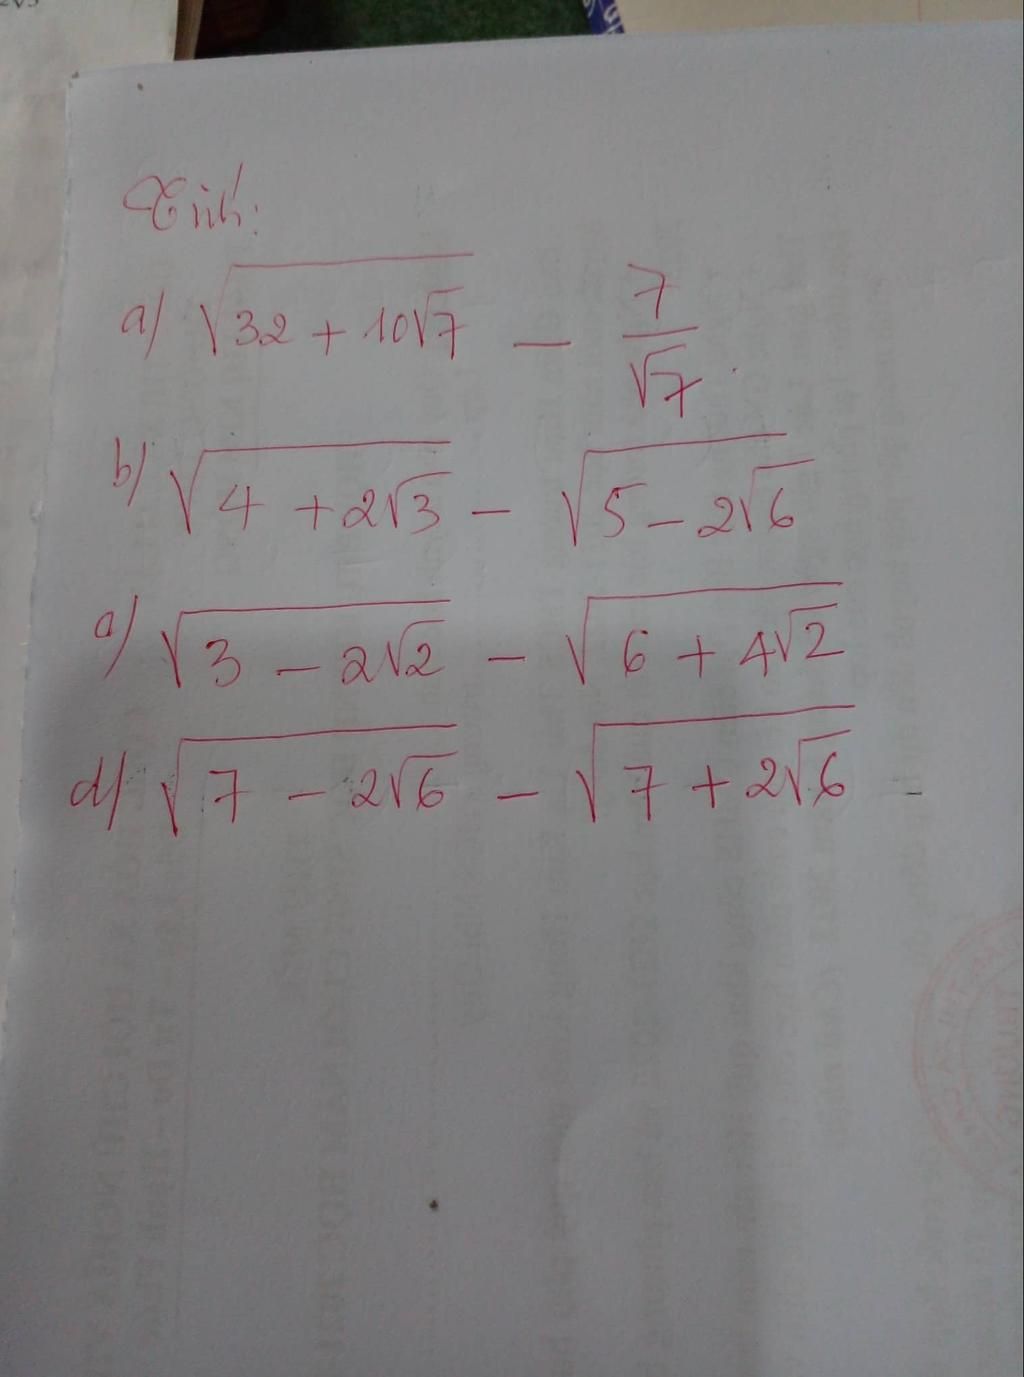 Tính:
a) √(32 + 10√7) - 7/√7
b) √(4 + 2√3) - √(5 - 2√6)
a) √(3 - 2√2) - √(6 + 4√2)
d) √(7 - 2√6) - √(7 + 2√6)